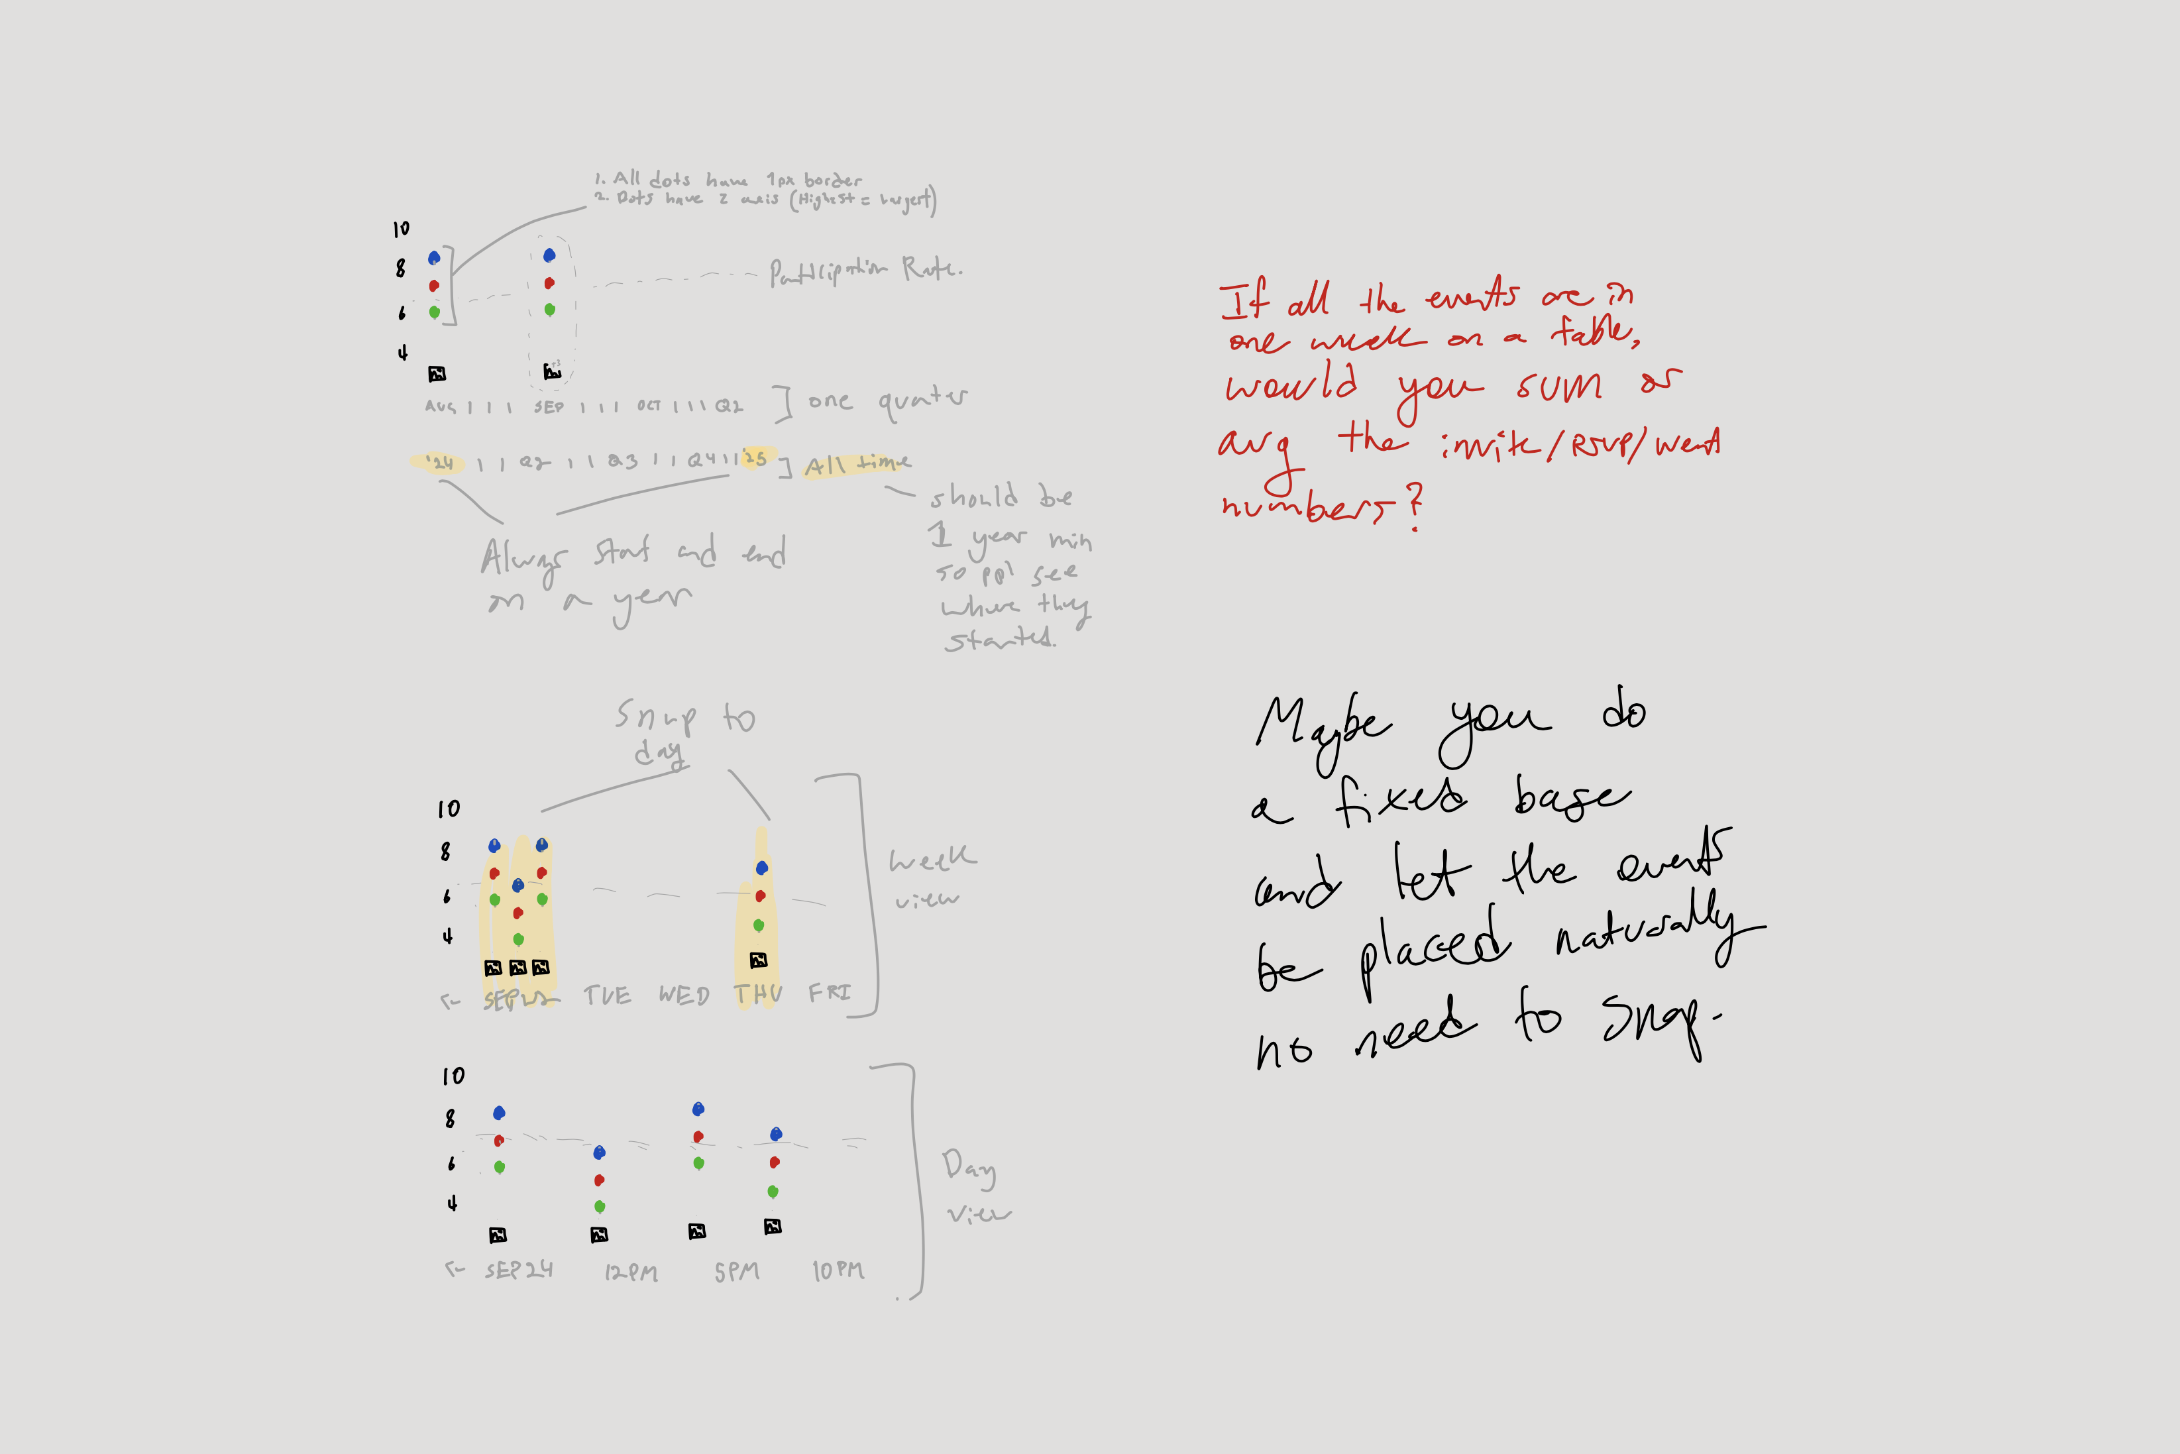 1. All dots have 1px border
2. Dots have z axis (Highest = largest)
10
8
6
4
Participation Rate.
AUG | | | SEP | | | OCT | | | Q2
] one quater
'24 | | Q2 | | Q3 | | Q4 | | '25
] All time
Always start and end
on a year
should be
1 year min
so ppl see
where they
started.
Snap to
day
10
8
6
4
← SEP TUE WED THU FRI
Week
view
10
8
6
4
← SEP 24 12PM 5PM 10PM
Day
view
If all the events are in
one week on a table,
would you sum or
avg the invite/RSVP/went
numbers?
Maybe you do
a fixed base
and let the events
be placed naturally
no need to snap.